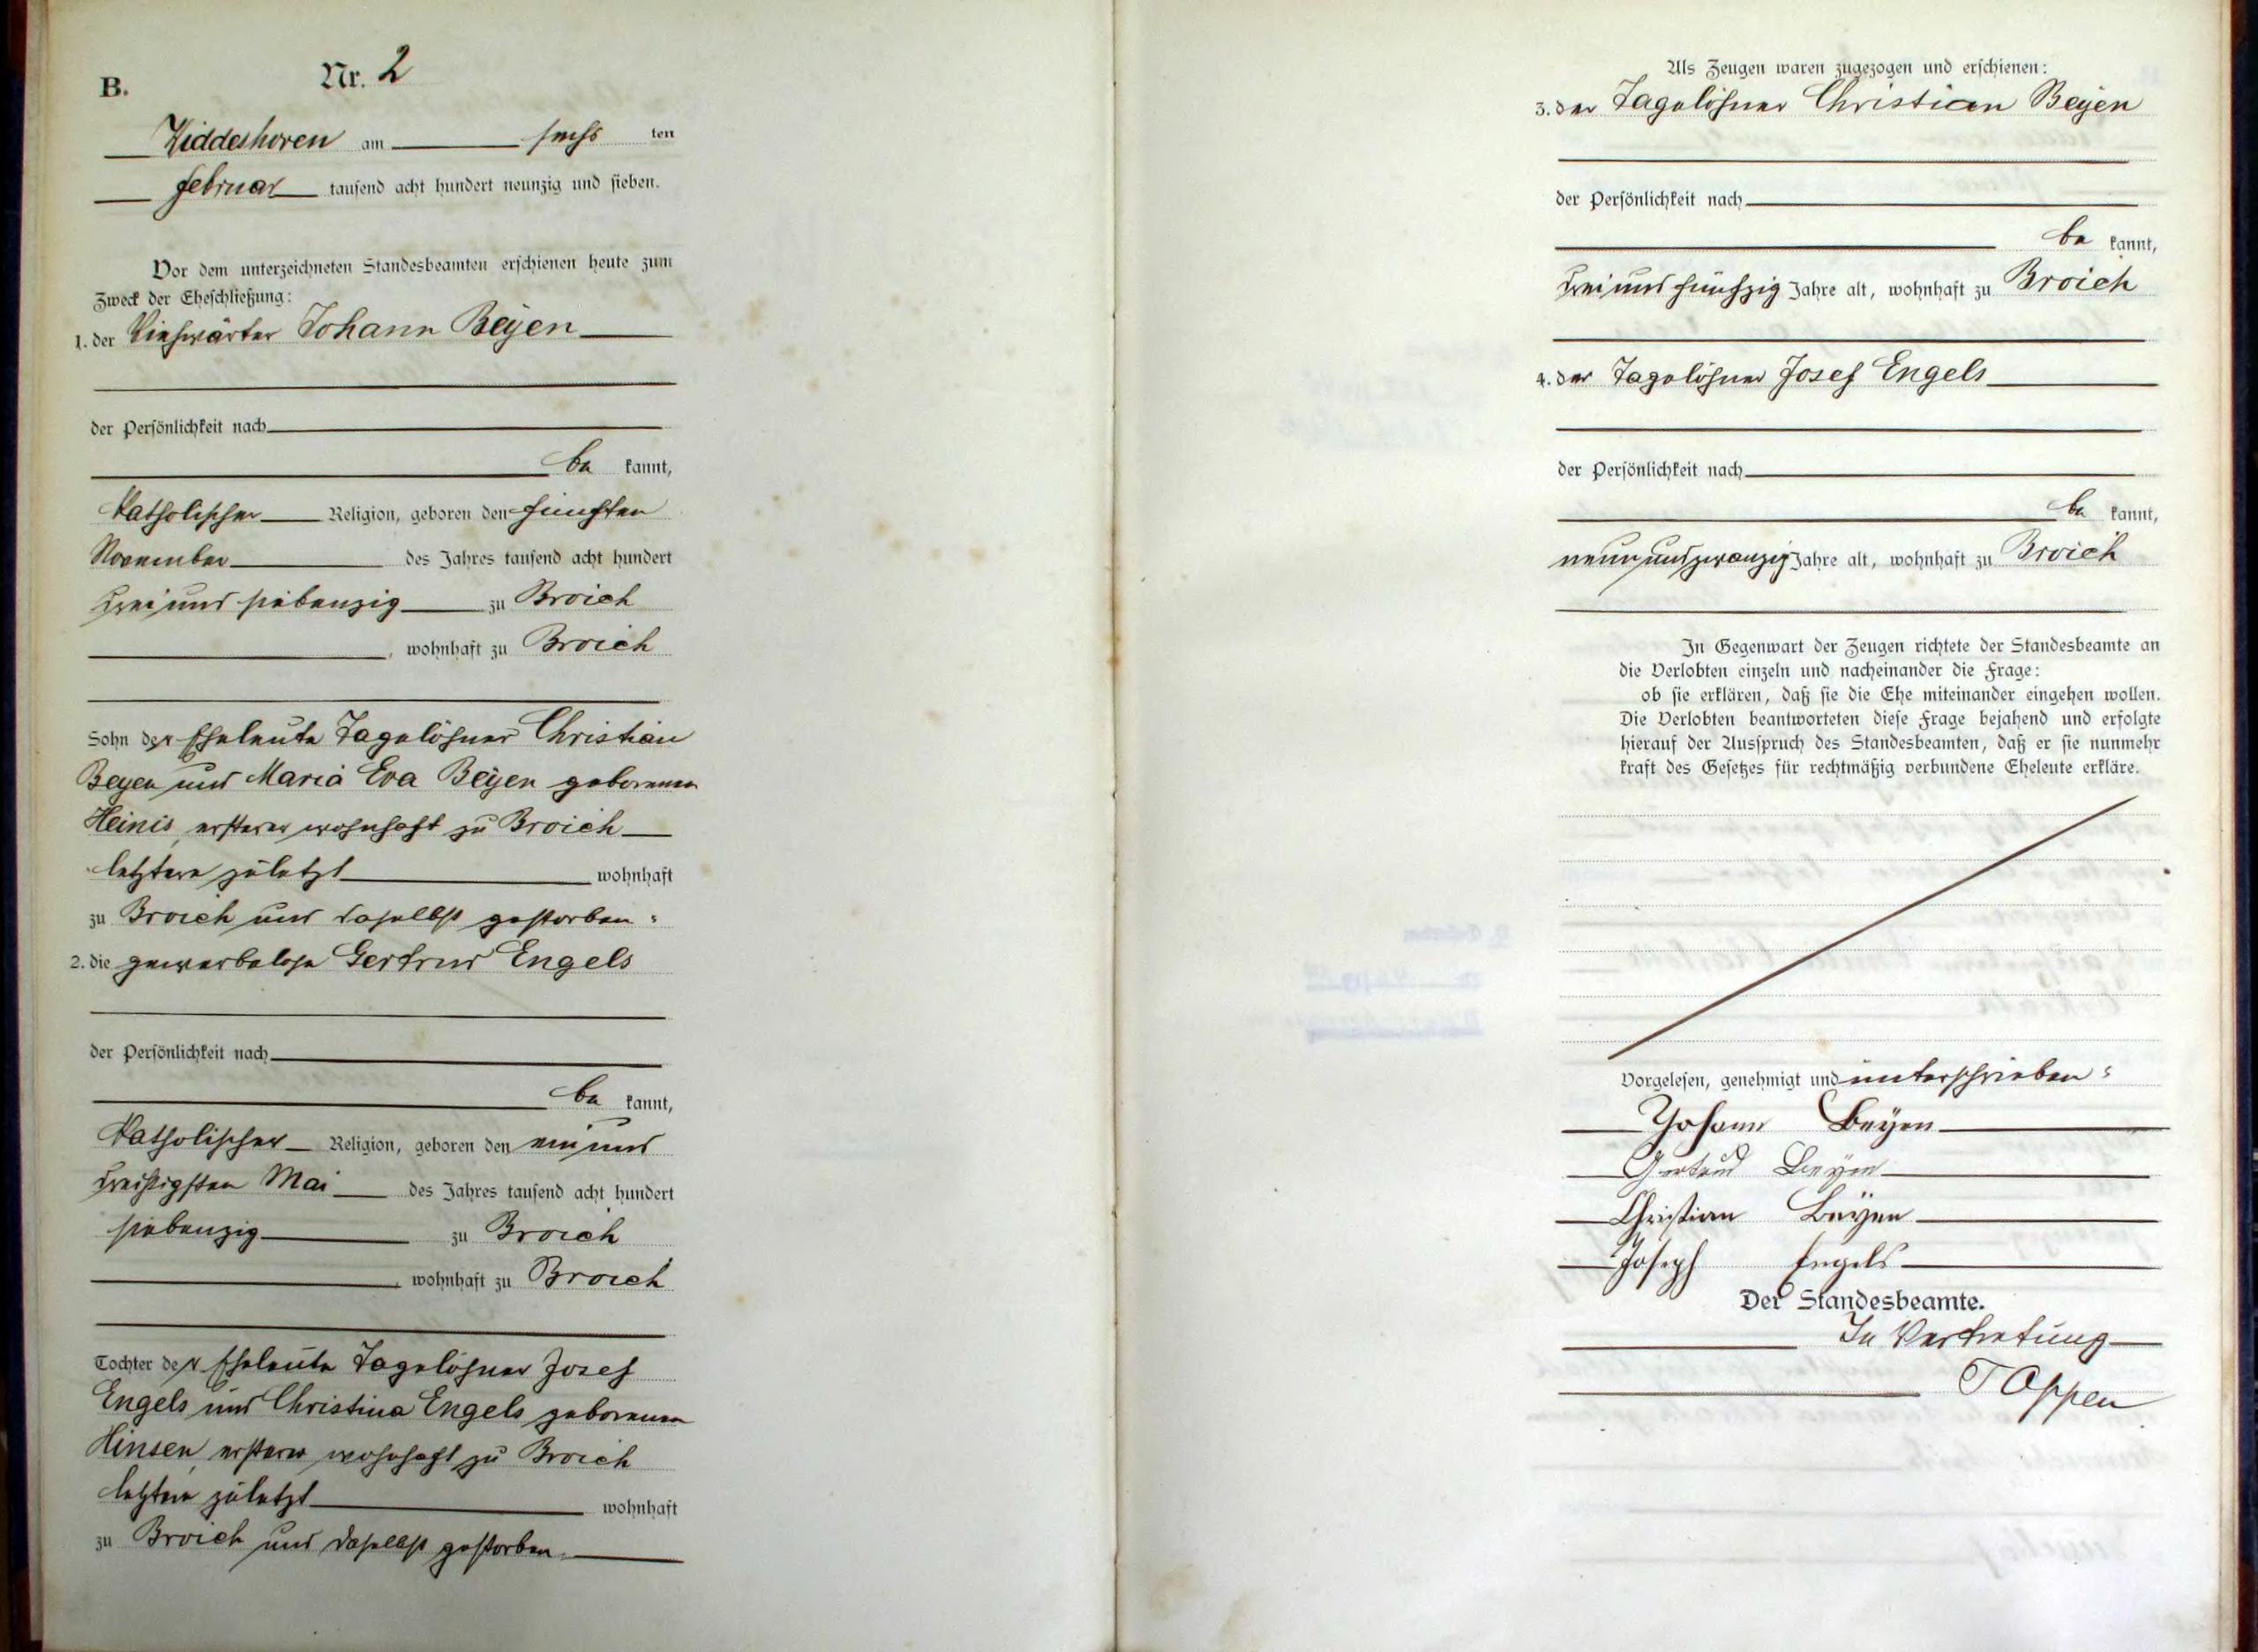 B.
Nr. 2
Hiddeshoven am sechs ten
Februar tausend acht hundert neunzig und sieben.
Vor dem unterzeichneten Standesbeamten erschienen heute zum
Zweck der Eheschließung:
1. der Viehwärter Johann Beyen
der Persönlichkeit nach
be kannt,
katholischer Religion, geboren den fünften
November des Jahres tausend acht hundert
drei und siebenzig zu Broich
, wohnhaft zu Broich
Sohn der Eheleute Tagelöhner Christian
Beyen und Maria Eva Beyen geborenen
Heinis, ersterer wohnhaft zu Broich
letztere zuletzt wohnhaft
zu Broich und daselbst gestorben:
2. die gewerbelose Gertrud Engels
der Persönlichkeit nach
be kannt,
katholischer Religion, geboren den ein und
dreißigsten Mai des Jahres tausend acht hundert
siebenzig zu Broich
, wohnhaft zu Broich
Tochter der Eheleute Tagelöhner Josef
Engels und Christina Engels geborenen
Hinsen, ersterer wohnhaft zu Broich
letztere zuletzt wohnhaft
zu Broich und daselbst gestorben.
Als Zeugen waren zugezogen und erschienen:
3. der Tagelöhner Christian Beyen
der Persönlichkeit nach
be kannt,
drei und fünfzig Jahre alt, wohnhaft zu Broich
4. der Tagelöhner Josef Engels
der Persönlichkeit nach
be kannt,
neun und zwanzig Jahre alt, wohnhaft zu Broich
In Gegenwart der Zeugen richtete der Standesbeamte an
die Verlobten einzeln und nacheinander die Frage:
ob sie erklären, daß sie die Ehe miteinander eingehen wollen.
Die Verlobten beantworteten diese Frage bejahend und erfolgte
hierauf der Ausspruch des Standesbeamten, daß er sie nunmehr
kraft des Gesetzes für rechtmäßig verbundene Eheleute erkläre.
Vorgelesen, genehmigt und unterschrieben:
Johann Beyen
Gertrud Beyen
Christian Beyen
Joseph Engels
Der Standesbeamte.
In Vertretung
Toppen